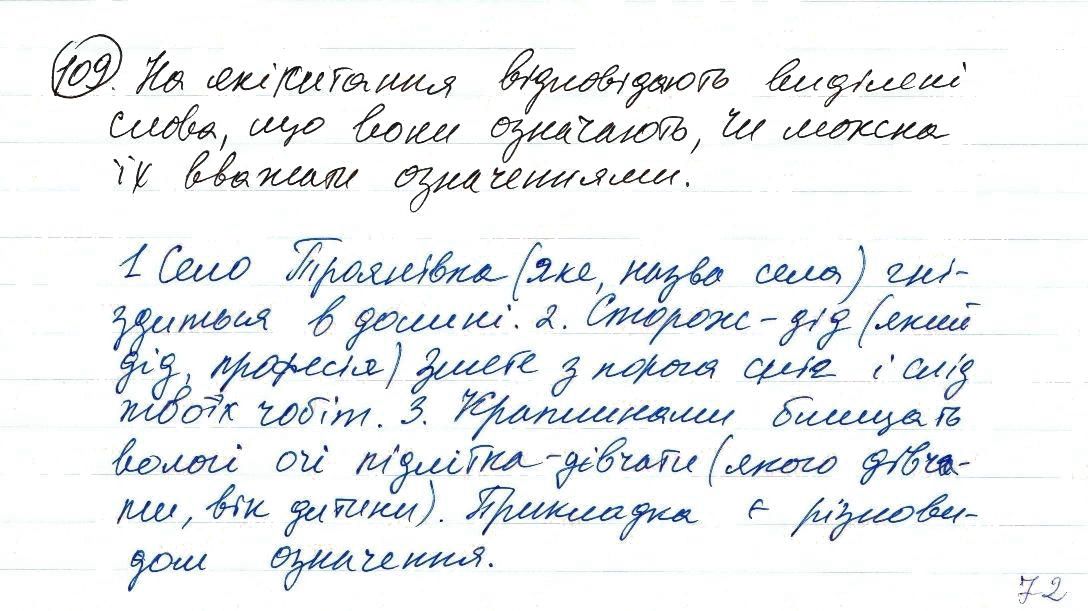 109. На які питання відповідають виділені
слова, що вони означають, чи можна
їх вважати означеннями.
1 Село Троянівка (яке, назва села) гні-
здиться в долині. 2. Сторож-дід (який
дід, професія) змете з порога сніг і слід
твоїх чобіт. 3. Краплинами блищать
вологі очі підлітка-дівчати (якого дівча-
ти, вік дитини). Прикладка є різнови-
дом означення.
72